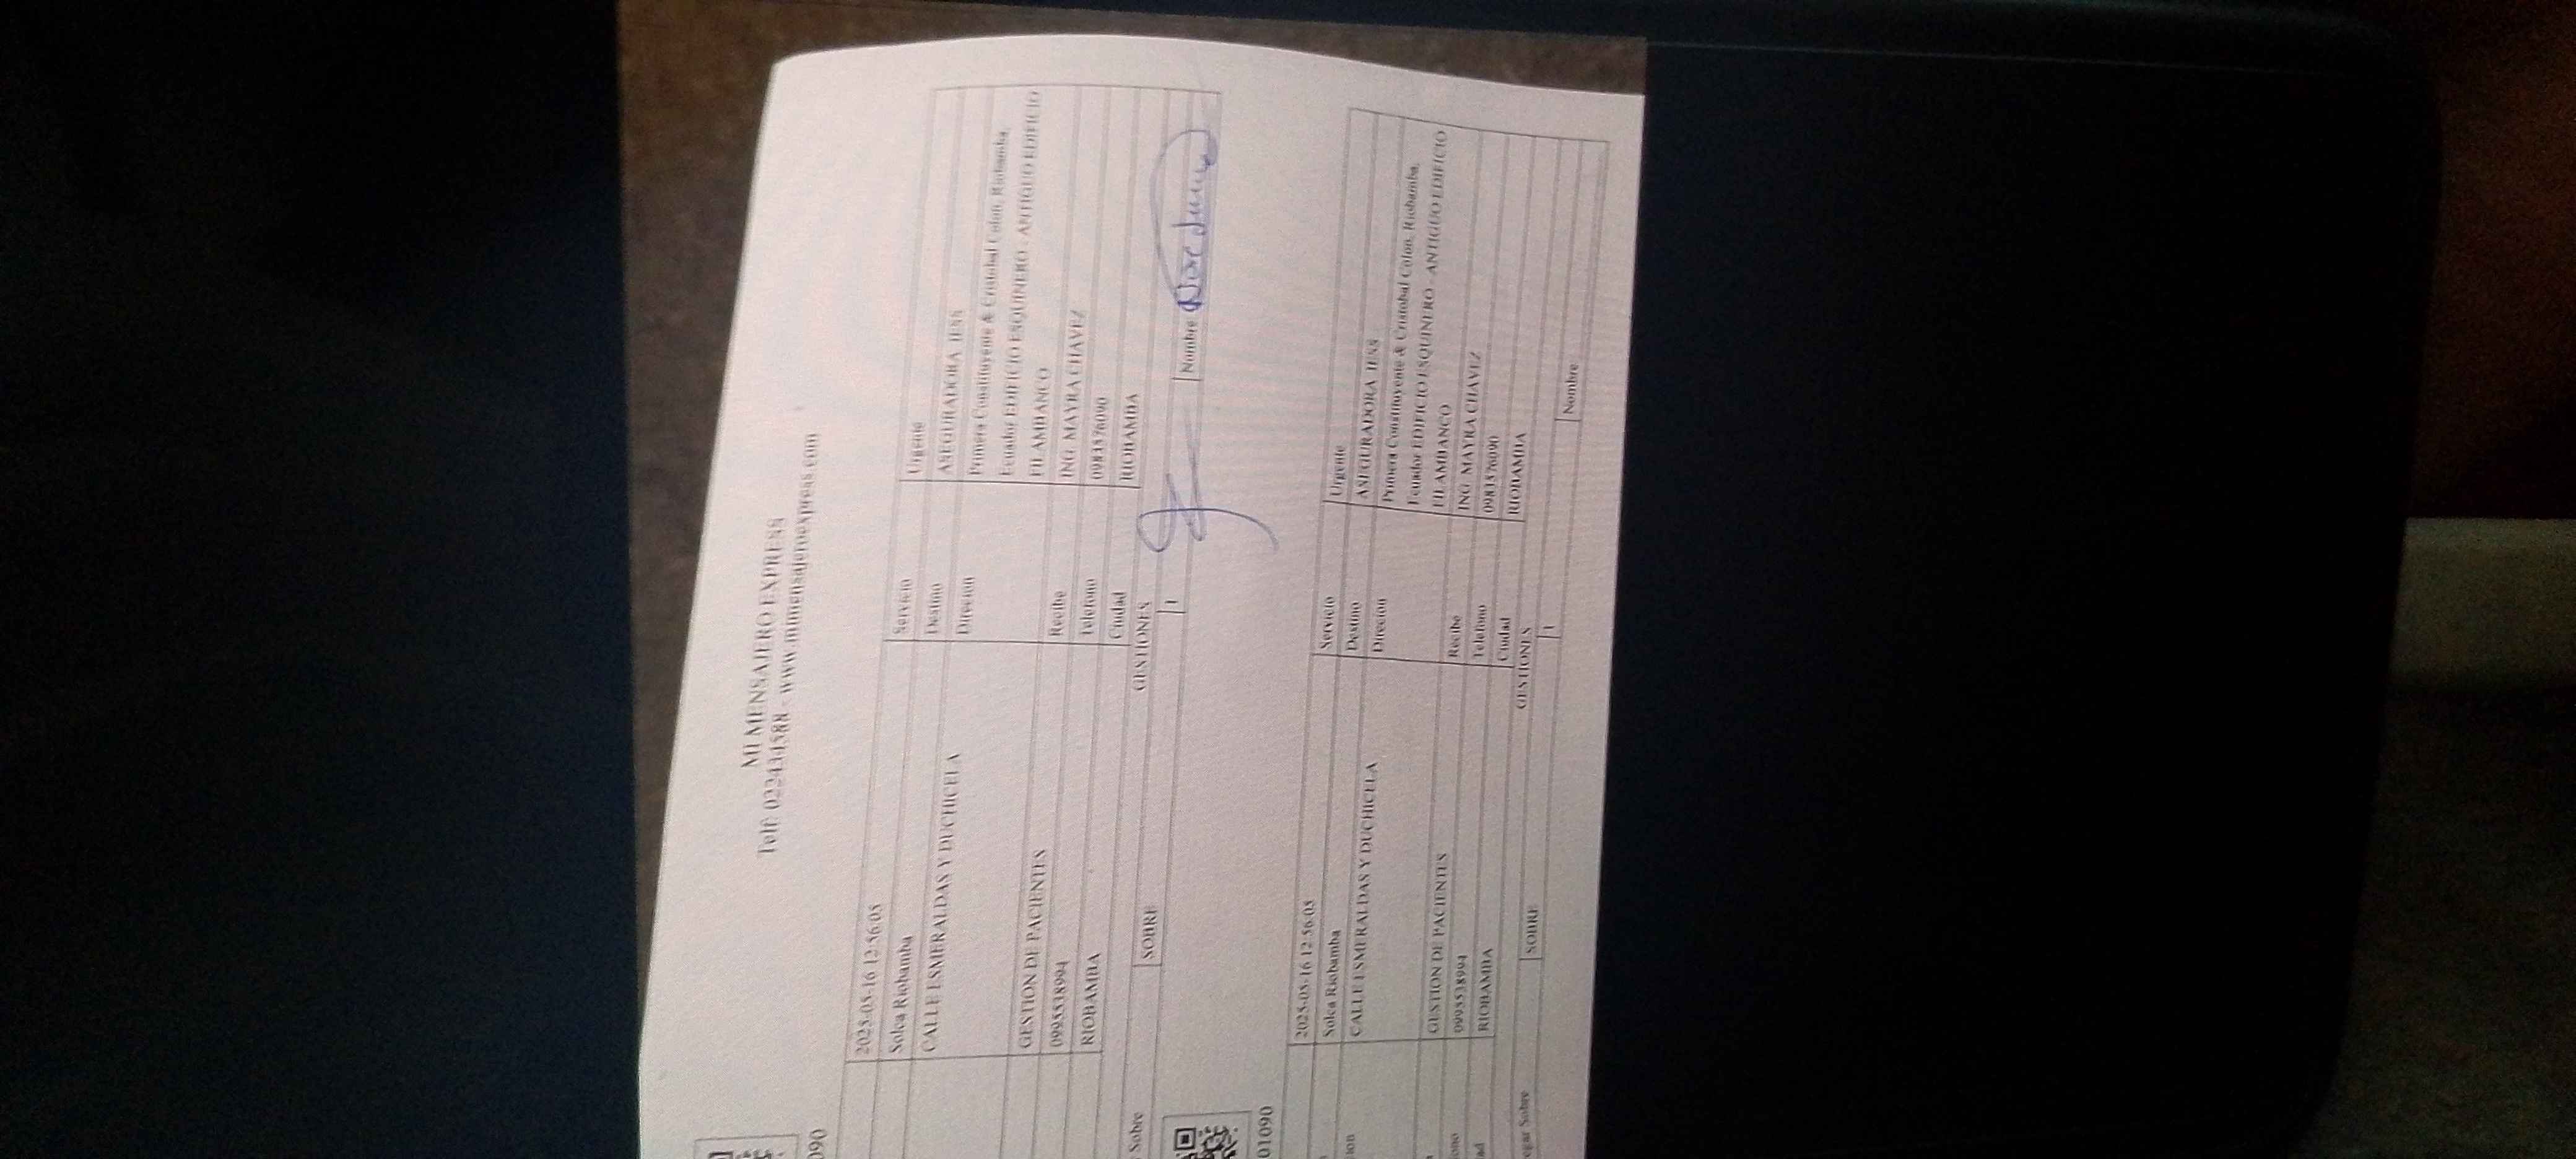 MI MENSAJERO EXPRESS
Telf: 022434588 - www.mimensajeroexpress.com
090
2025-05-16 12:56:05 Servicio Urgente
Solca Riobamba Destino ASEGURADORA IESS
CALLE ESMERALDAS Y DUCHICELA Direccion Primera Constituyente & Cristobal Colon, Riobamba,
Ecuador EDIFICIO ESQUINERO - ANTIGUO EDIFICIO
FILAMBANCO
GESTION DE PACIENTES Recibe ING. MAYRA CHAVEZ
0995538994 Telefono 0983576090
RIOBAMBA Ciudad RIOBAMBA
GESTIONES
Sobre SOBRE 1
Nombre
01090
2025-05-16 12:56:05 Servicio Urgente
Solca Riobamba Destino ASEGURADORA IESS
ion CALLE ESMERALDAS Y DUCHICELA Direccion Primera Constituyente & Cristobal Colon, Riobamba,
Ecuador EDIFICIO ESQUINERO - ANTIGUO EDIFICIO
FILAMBANCO
GESTION DE PACIENTES Recibe ING. MAYRA CHAVEZ
ono 0995538994 Telefono 0983576090
ad RIOBAMBA Ciudad RIOBAMBA
GESTIONES
egar Sobre SOBRE 1
Nombre